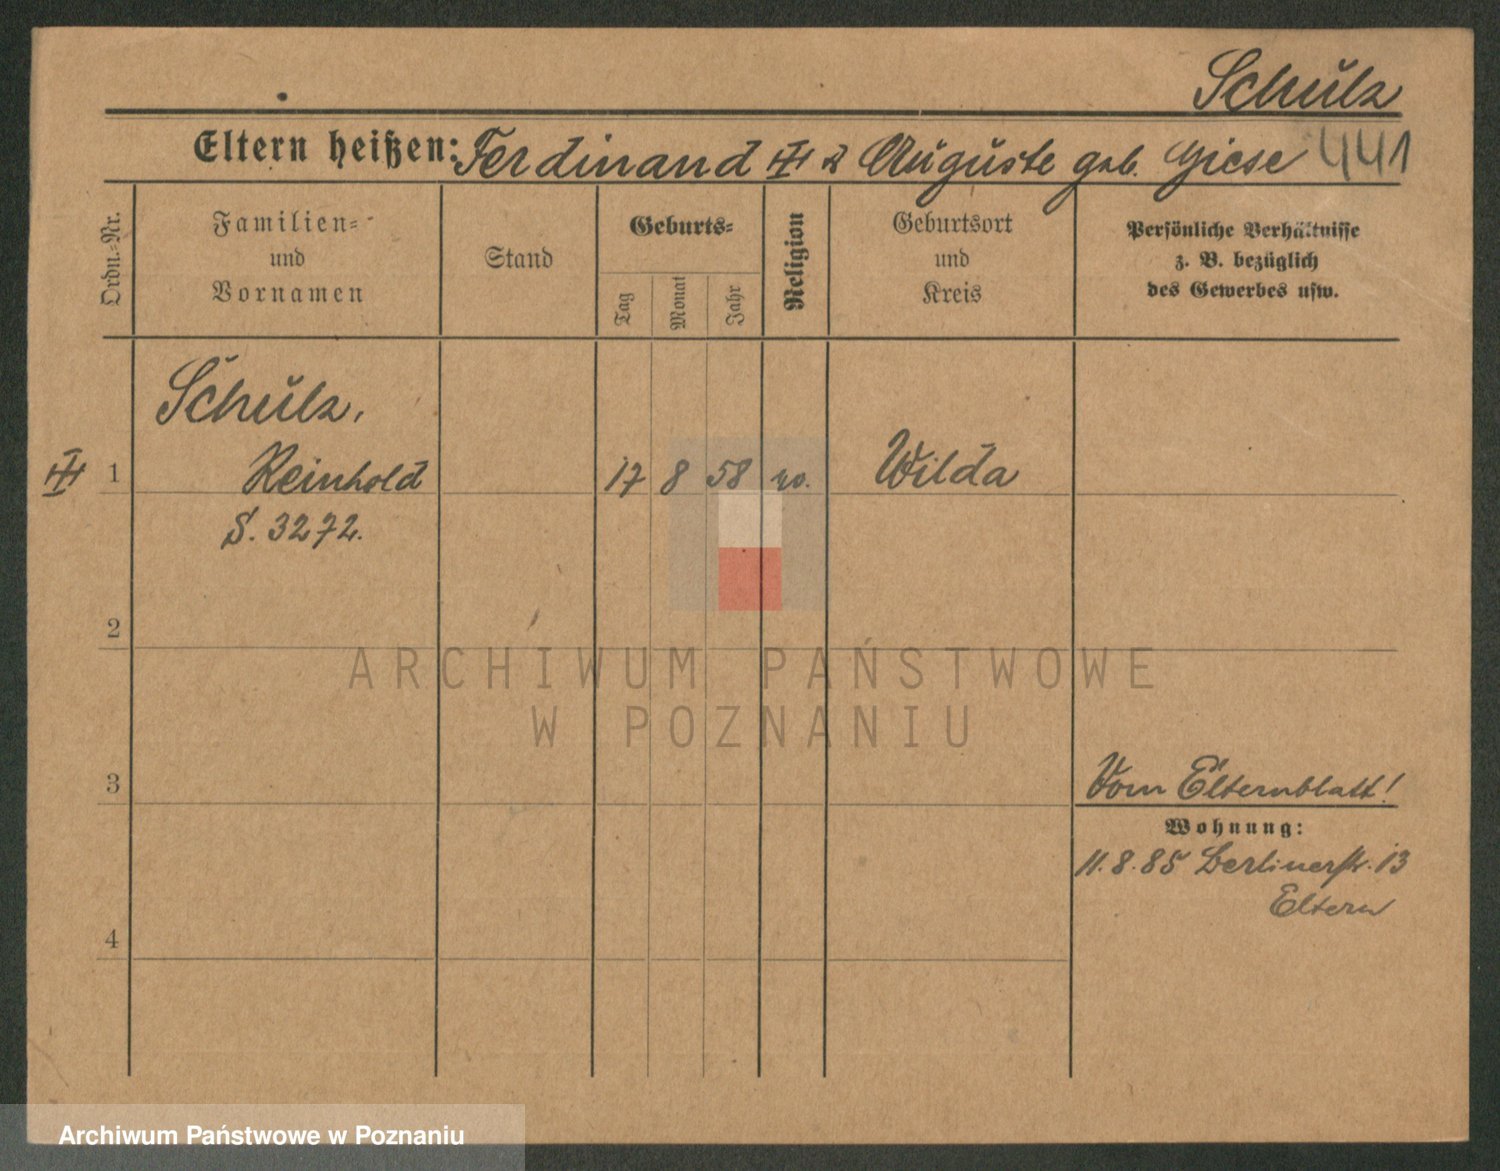 Schulz
Eltern heißen: Ferdinand & Auguste geb. Giese 441
Ordn.-Nr.
Familien-
und
Vornamen
Stand
Geburts-
Tag
Monat
Jahr
Religion
Geburtsort
und
Kreis
Persönliche Verhältnisse
z. B. bezüglich
des Gewerbes usw.
Schulz,
1 Reinhold 17 8 58 Wilda
S. 3272.
2
ARCHIWUM PAŃSTWOWE
W POZNANIU
3 Vom Elternblatt!
Wohnung:
11.8.85 Berlinerstr. 13
Eltern
4
Archiwum Państwowe w Poznaniu